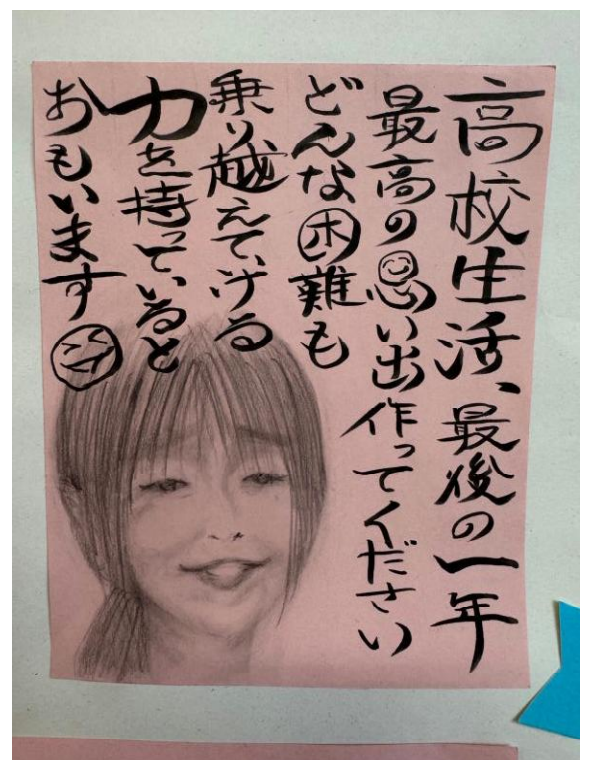 高校生活、最後の一年
最高の思い出作ってください
どんな困難も
乗り越えていける
力を持っていると
おもいます